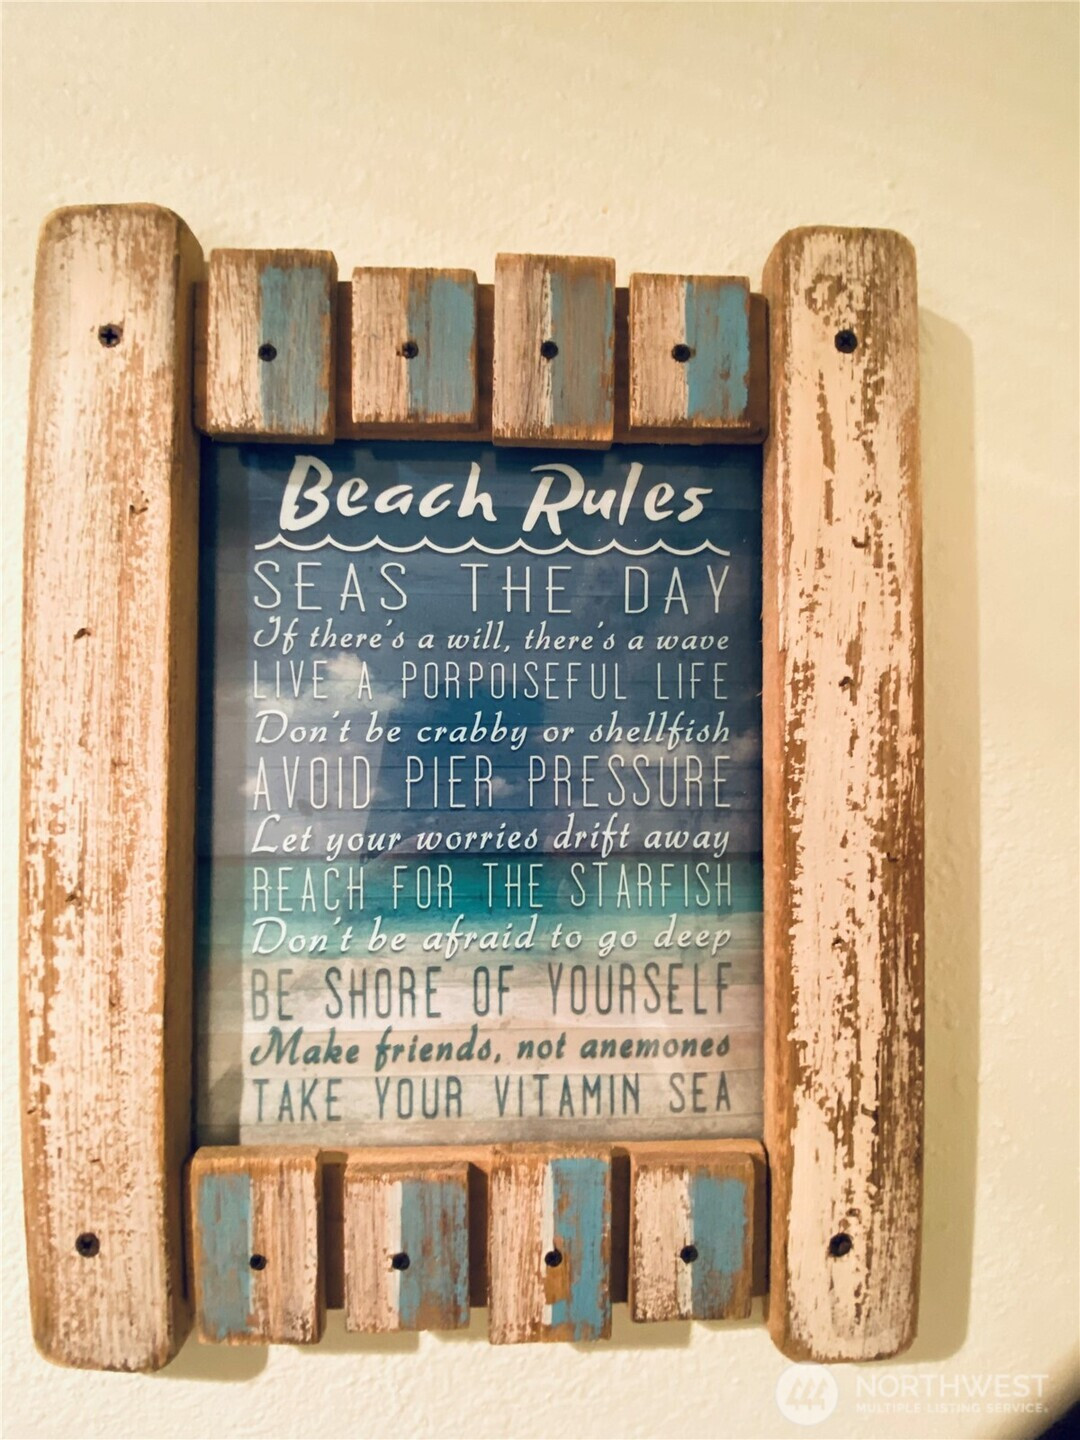 Beach Rules
SEAS THE DAY
If there's a will, there's a wave
LIVE A PORPOISEFUL LIFE
Don't be crabby or shellfish
AVOID PIER PRESSURE
Let your worries drift away
REACH FOR THE STARFISH
Don't be afraid to go deep
BE SHORE OF YOURSELF
Make friends, not anemones
TAKE YOUR VITAMIN SEA
NORTHWEST
MULTIPLE LISTING SERVICE